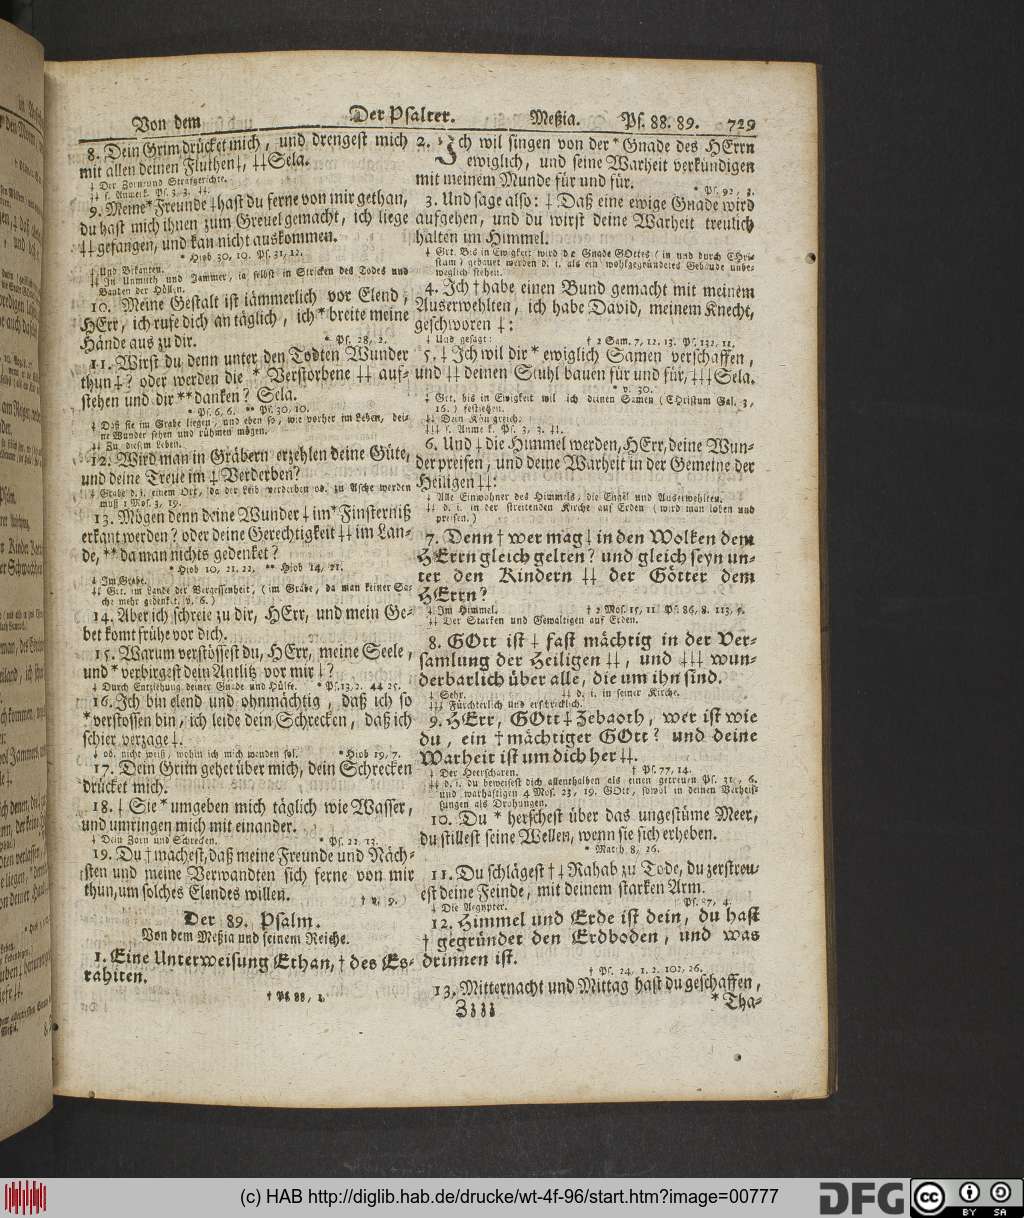 Von dem Der Psalter. Meßia. Ps. 88. 89. 729
8. Dein Grim drücket mich, und drengest mich
mit allen deinen Fluthen‡, ‡‡Sela.
‡ Der Zorn und Strafgerichte.
‡‡ s. Anmerk. Ps. 3, 3. ‡‡.
9. Meine* Freunde ‡ hast du ferne von mir gethan,
du hast mich ihnen zum Greuel gemacht, ich liege
‡‡ gefangen, und kan nicht auskommen.
* Hiob 30, 10. Ps. 31, 12.
‡ Und Bekanten.
‡‡ In Unmuth und Jammer, ja selbst in Stricken des Todes und
Banden der Höllen.
10. Meine Gestalt ist jämmerlich vor Elend,
HErr, ich rufe dich an täglich, ich * breite meine
Hände aus zu dir.
* Ps. 28, 2.
11. Wirst du denn unter den Todten Wunder
thun‡? oder werden die * Verstorbene ‡‡ auf-
stehen und dir **danken? Sela.
* Ps. 6, 6. ** Ps. 30, 10.
‡ Daß sie im Grabe liegen, und eben so, wie vorher im Leben, dei-
ne Wunder sehen und rühmen mögen.
‡‡ Zu diesem Leben.
12. Wird man in Gräbern erzehlen deine Güte,
und deine Treue im ‡ Verderben?
‡ Grabe d. i. einem Ort, da der Leib verderben od. zu Asche werden
muß 1 Mos. 3, 19.
13. Mögen denn deine Wunder ‡ im* Finsterniß
erkant werden? oder deine Gerechtigkeit ‡‡ im Lan-
de, ** da man nichts gedenket?
* Hiob 10, 21. 22. ** Hiob 14, 21.
‡ Im Grabe.
‡‡ Grt. im Lande der Vergessenheit, (im Grabe, da man keiner Sa-
che mehr gedenkt, v. 6.)
14. Aber ich schreie zu dir, HErr, und mein Ge-
bet komt frühe vor dich.
15. Warum verstössest du, HErr, meine Seele,
und * verbirgest dein Antlitz vor mir ‡?
‡ Durch Entziehung deiner Gnade und Hülfe. * Ps. 13, 2. 44 25.
16. Ich bin elend und ohnmächtig, daß ich so
* verstossen bin, ich leide dein Schrecken, daß ich
schier verzage ‡.
‡ od. nicht weiß, wohin ich mich wenden sol. * Hiob 19, 7.
17. Dein Grim gehet über mich, dein Schrecken
drücket mich.
18. ‡ Sie * umgeben mich täglich wie Wasser,
und umringen mich mit einander.
‡ Dein Zorn und Schrecken. * Ps. 22, 13.
19. Du † machest, daß meine Freunde und Näch-
sten und meine Verwandten sich ferne von mir
thun, um solches Elendes willen.
† v. 9.)
Der 89. Psalm.
Von dem Meßia und seinem Reiche.
1. Eine Unterweisung Ethan, † des Es-
rahiten.
† Ps. 88, 1.
2. Ich wil singen von der * Gnade des HErrn
ewiglich, und seine Warheit verkündigen
mit meinem Munde für und für.
* Ps. 92, 3.
3. Und sage also: ‡ Daß eine ewige Gnade wird
aufgehen, und du wirst deine Warheit treulich
halten im Himmel.
‡ Grt. Bis in Ewigkeit wird die Gnade GOttes (in und durch CHri-
stum) gebauet werden d. i. als ein wohlgegründetes Gebäude unbe-
weglich stehen.
4. Ich † habe einen Bund gemacht mit meinem
Auserwehlten, ich habe David, meinem Knecht,
geschworen ‡:
‡ Und gesagt: † 2 Sam. 7, 12. 13. Ps. 132, 11.
5. ‡ Ich wil dir * ewiglich Samen verschaffen,
und ‡‡ deinen Stuhl bauen für und für, ‡‡‡ Sela.
* v. 30.
‡ Grt. bis in Ewigkeit wil ich deinen Samen (CHristum Gal. 3,
16.) festigen.
‡‡ Dein Königreich.
‡‡‡ s. Anmerk. Ps. 3, 3. ‡‡.
6. Und ‡ die Himmel werden, HErr, deine Wun-
der preisen, und deine Warheit in der Gemeine der
Heiligen ‡‡:
‡ Alle Einwohner des Himmels, die Engel und Auserwehlten.
‡‡ d. i. in der streitenden Kirche auf Erden (wird man loben und
preisen.)
7. Denn † wer mag ‡ in den Wolken dem
HErrn gleich gelten? und gleich seyn un-
ter den Kindern ‡‡ der Götter dem
HErrn?
‡ Im Himmel. † 2 Mos. 15, 11. Ps. 86, 8. 113, 5.
‡‡ Der Starken und Gewaltigen auf Erden.
8. GOtt ist ‡ fast mächtig in der Ver-
samlung der Heiligen ‡‡, und ‡‡‡ wun-
derbarlich über alle, die um ihn sind.
‡ Sehr. ‡‡ d. i. in seiner Kirche.
‡‡‡ Fürchterlich und erschrecklich.
9. HErr, GOtt ‡ Zebaoth, wer ist wie
du, ein † mächtiger GOtt? und deine
Warheit ist um dich her ‡‡.
‡ Der Heerscharen. † Ps. 77, 14.
‡‡ d. i. du beweisest dich allenthalben als einen getreuen Ps. 31, 6.
und warhaftigen 4 Mos. 23, 19. GOtt, sowol in deinen Verheis-
sungen als Drohungen.
10. Du * herschest über das ungestüme Meer,
du stillest seine Wellen, wenn sie sich erheben.
* Matth. 8, 26.
11. Du schlägest † ‡ Rahab zu Tode, du zerstreu-
est deine Feinde, mit deinem starken Arm.
‡ Die Aegypter. † Ps. 87, 4.
12. Himmel und Erde ist dein, du hast
† gegründet den Erdboden, und was
drinnen ist.
† Ps. 24, 1. 2. 102, 26.
13. Mitternacht und Mittag hast du geschaffen,
Zzzz * Tha-
(c) HAB http://diglib.hab.de/drucke/wt-4f-96/start.htm?image=00777
DFG
cc
BY SA